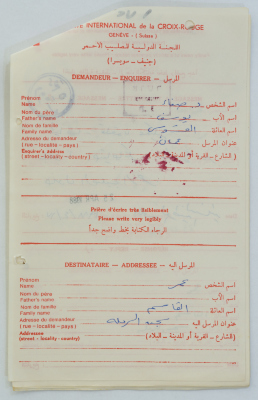 INTERNATIONAL de la CROIX-ROUGE
GENÈVE - (Suisse)
اللجنة الدولية للصليب الاحمر
(جنيف - سويسرا)
DEMANDEUR - ENQUIRER - المرسل
Prénom
Name اسم الشخص
Nom du père
Father's name يوسف اسم الأب
Nom de famille
Family name اسم العائلة
Adresse du demandeur
(rue - localité - pays) عمان عنوان المرسل
Enquirer's address
(street - locality - country) (الشارع - القرية أو
Prière d'écrire très lisiblement
Please write very legibly
الرجاء الكتابة بخط واضح جداً
DESTINATAIRE - ADDRESSEE - المرسل اليه
Prénom
Name عمر اسم الشخص
Father's name اسم الأب
Nom de famille
Family name القاسم اسم العائلة
Adresse du demandeur
(rue - localité - pays) سجن الرملة عنوان المرسل اليه
Addressee
(street - locality - country) (الشارع - القرية أو المدينة - البلاد)